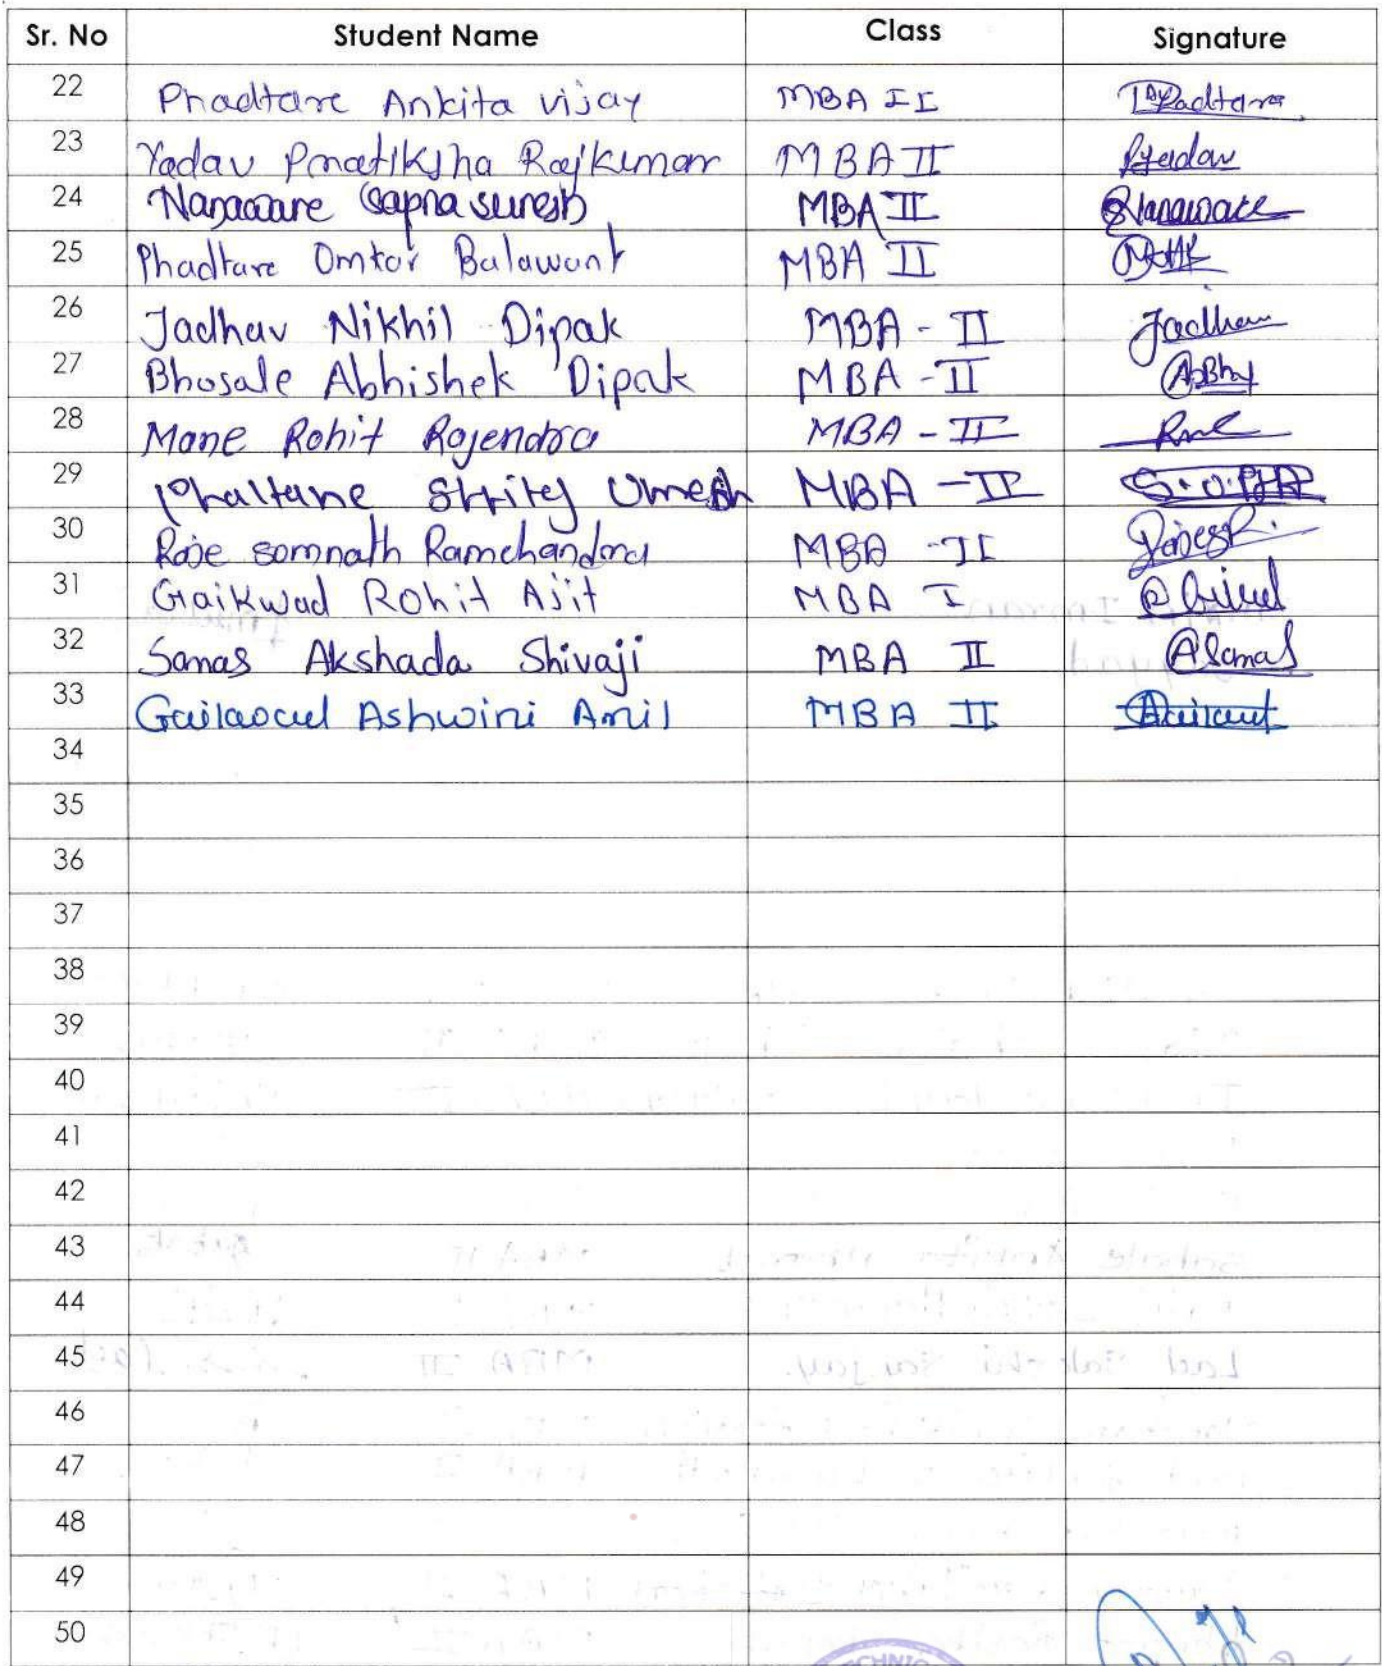 Sr. No Student Name Class Signature
22 Phadtare Ankita vijay MBA II Phadtare
23 Yadav Pratiksha Rajkumar MBA II Pyadav
24 Nanaware Sapna suresh MBA II SNanaware
25 Phadtare Omkar Balawant MBA II
26 Jadhav Nikhil Dipak MBA - II Jadhav
27 Bhosale Abhishek Dipak MBA - II
28 Mane Rohit Rajendra MBA - II
29 Phaltane Umesh MBA - II
30 somnath Ramchandra MBA - II
31 Gaikwad Rohit Ajit MBA I
32 Sanas Akshada Shivaji MBA II ASanas
33 Gaikwad Ashwini Anil MBA II
34
35
36
37
38
39
40
41
42
43
44
45
46
47
48
49
50